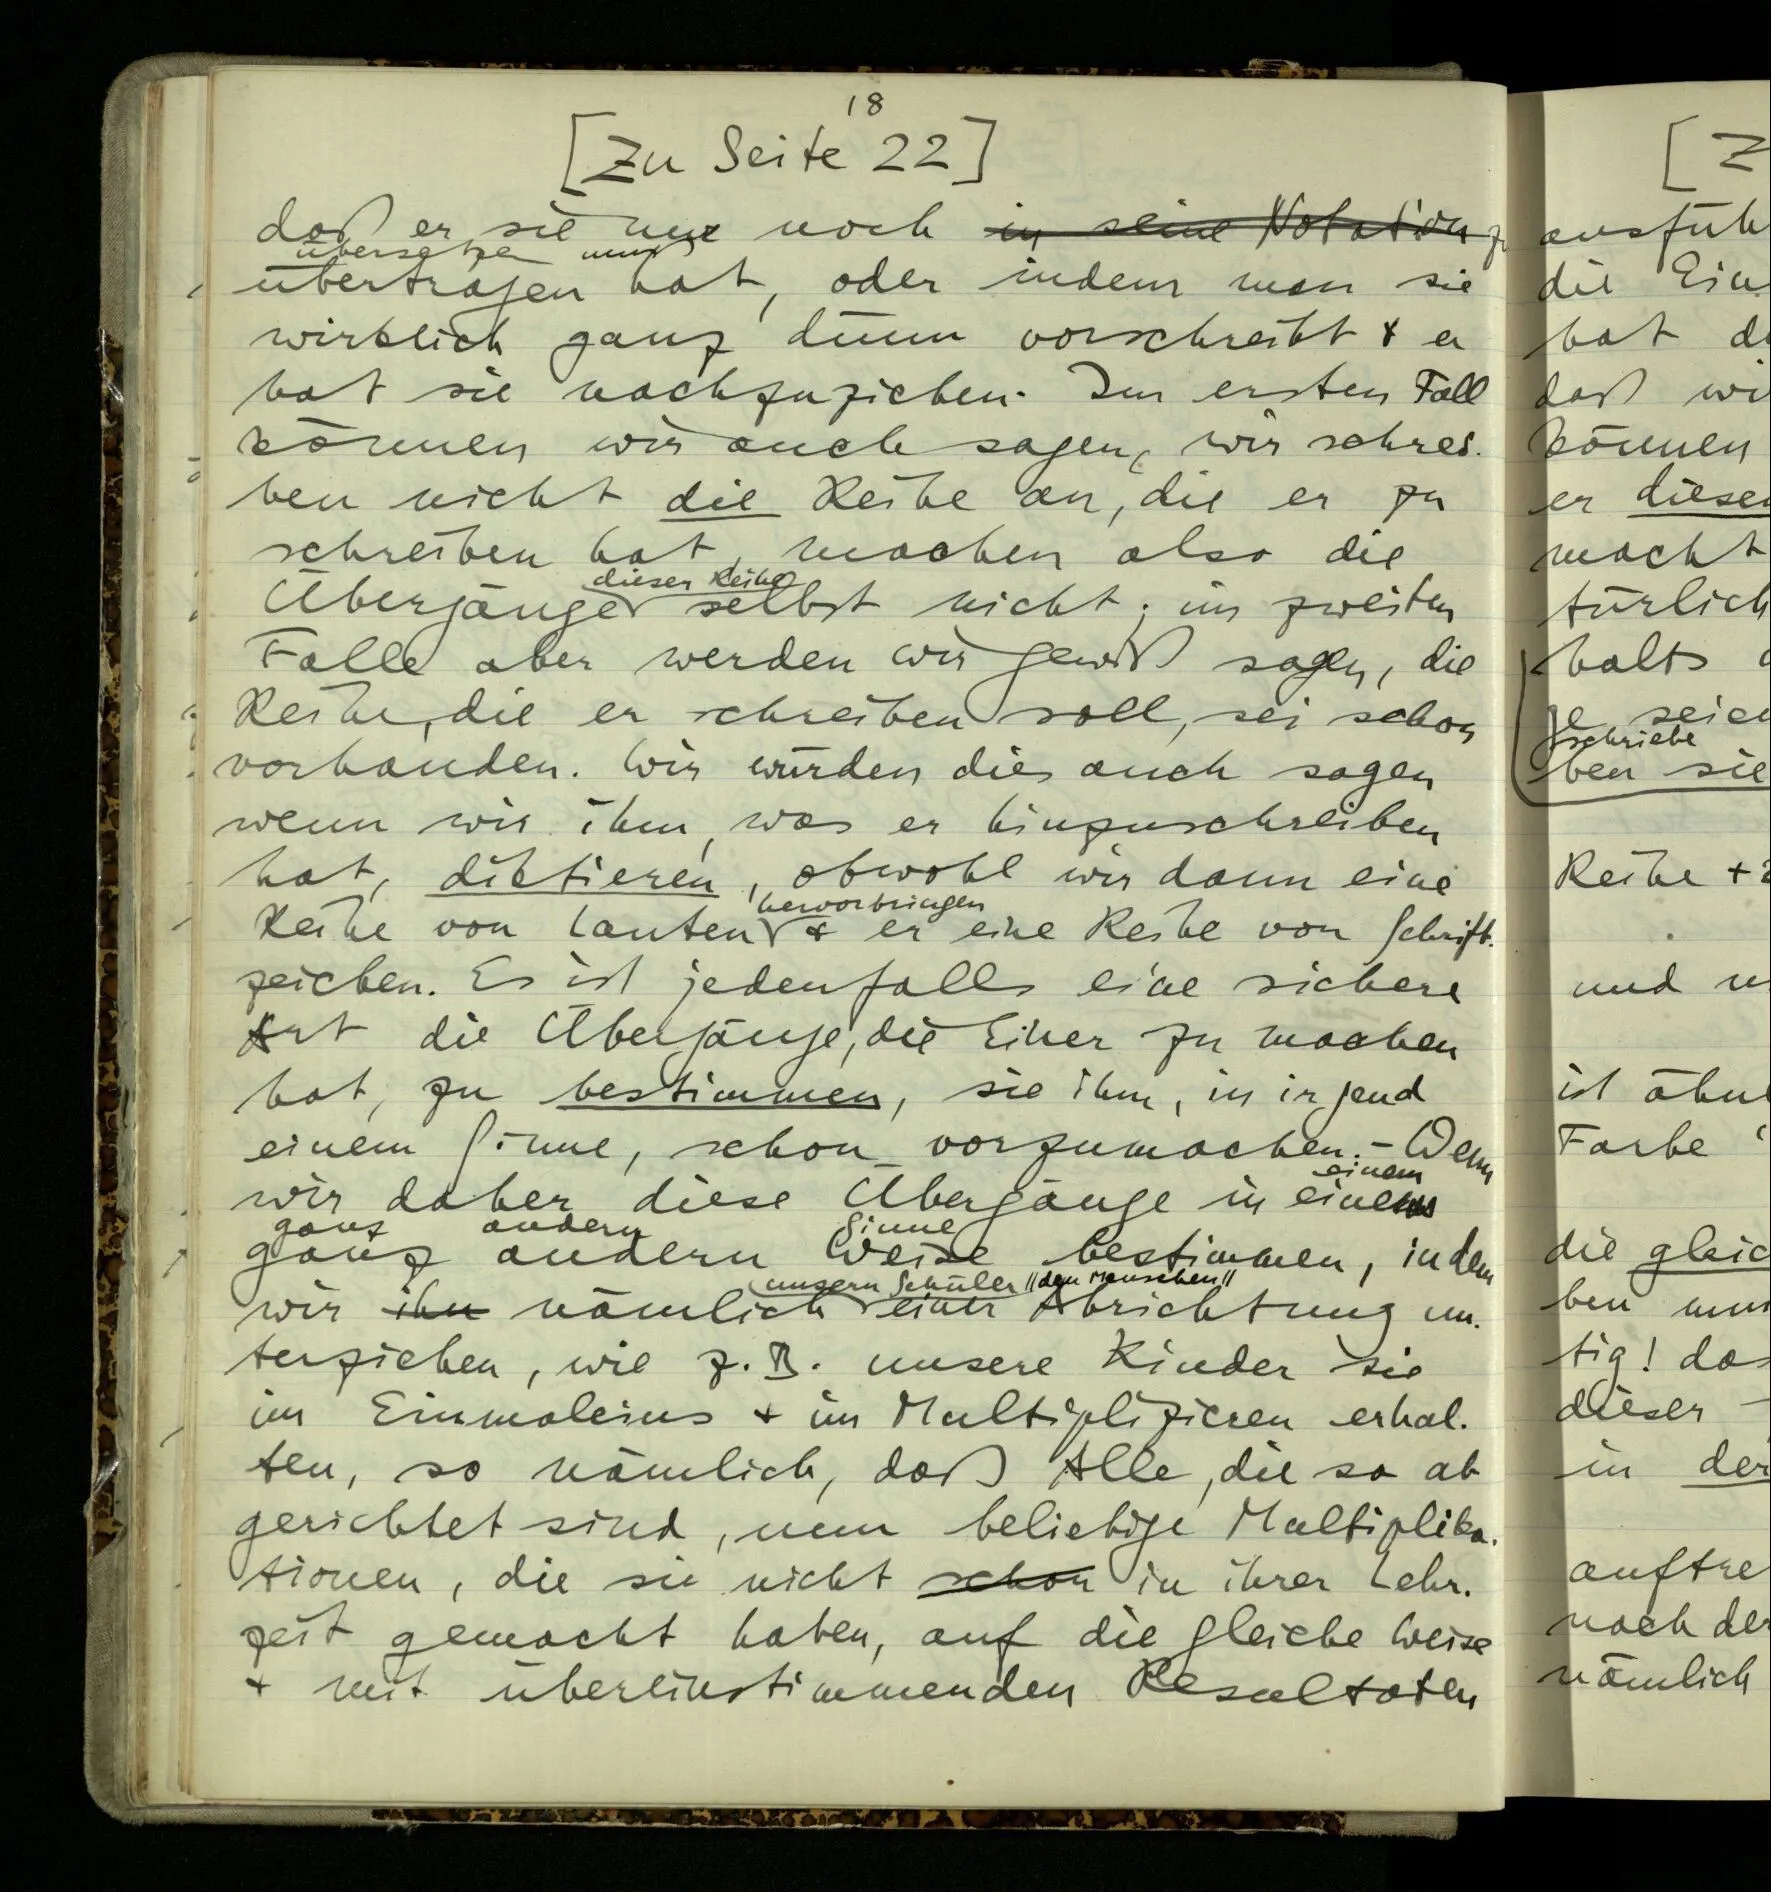 18
[Zu Seite 22]
daß er sie nur noch in seine Notation zu
übersetzen muß
übertragen hat, oder indem man sie
wirklich ganz dünn vorschreibt & er
hat sie nachzuziehen. Im ersten Fall
können wir auch sagen, wir schrei-
ben nicht die Reihe an, die er zu
schreiben hat, machen also die
dieser Reihe
Übergänge selbst nicht; im zweiten
Falle aber werden wir gewiß sagen, die
Reihe, die er schreiben soll, sei schon
vorhanden. Wir würden dies auch sagen
wenn wir ihm, was er hinzuschreiben
hat, diktieren, obwohl wir dann eine
hervorbringen
Reihe von Lauten & er eine Reihe von Schrift-
zeichen. Es ist jedenfalls eine sichere
Art die Übergänge, die Einer zu machen
hat, zu bestimmen, sie ihm, in irgend
einem Sinne, schon vorzumachen. – Wenn
einem
wir daher diese Übergänge in einem
ganz andern Sinne
ganz andern Weise bestimmen, indem
unsern Schüler // den Menschen //
wir ihn nämlich einer Abrichtung un-
terziehen, wie z.B. unsere Kinder sie
im Einmaleins & im Multiplizieren erhal-
ten, so nämlich, daß Alle, die so ab
gerichtet sind, nun beliebige Multiplika-
tionen, die sie nicht schon in ihrer Lehr-
zeit gemacht haben, auf die gleiche Weise
& mit übereinstimmenden Resultaten
[Z
ausfüh
die Ein
hat d
daß wi
können
er diesen
macht
türlich
halts
je seien
schriebe
ben sie
Reihe +2
und
ist ähnl
Farbe
die gleic
ben mu
tig! das
dieser
in der
auftre
nach der
nämlich